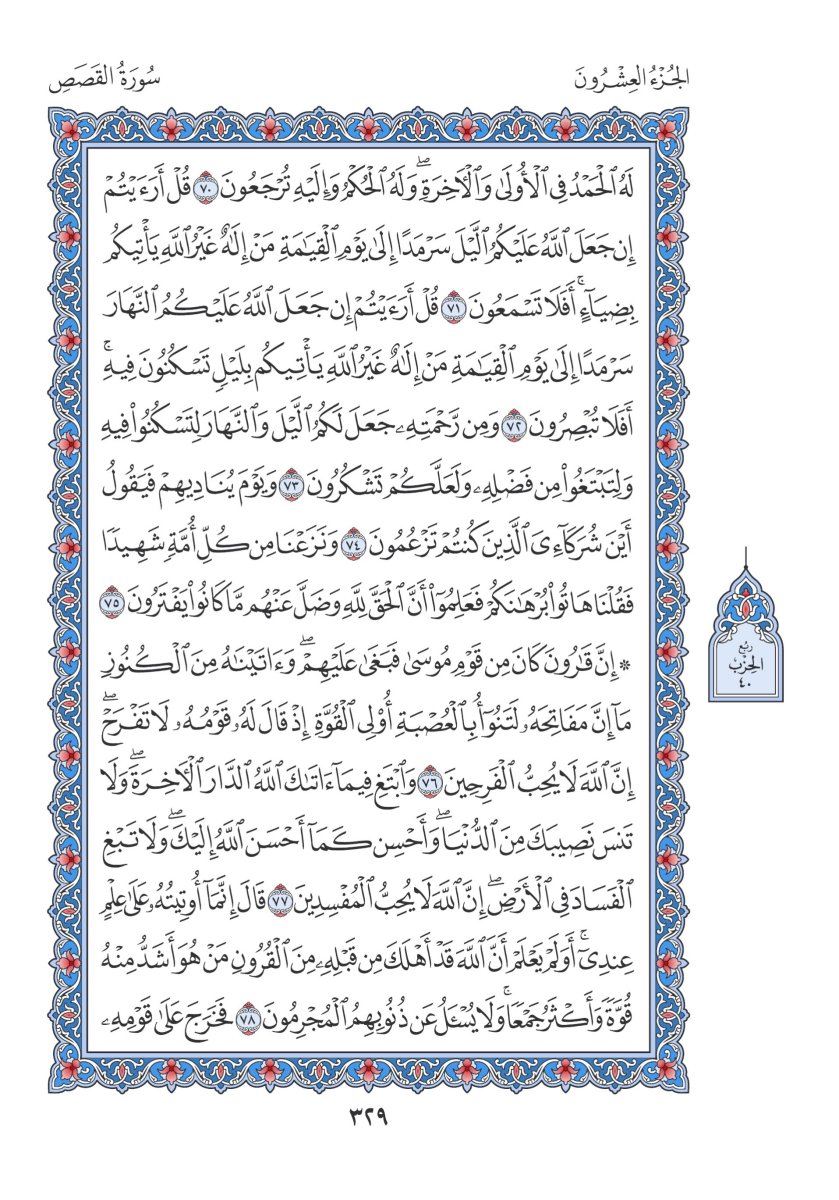 الجُزْءُ العِشْرُونَ
سُورَةُ القَصَصِ
لَهُ ٱلْحَمْدُ فِى ٱلْأُولَىٰ وَٱلْأَخِرَةِۖ وَلَهُ ٱلْحُكْمُ وَإِلَيْهِ تُرْجَعُونَ ٧٠ قُلْ أَرَءَيْتُمْ
إِن جَعَلَ ٱللَّهُ عَلَيْكُمُ ٱلَّيْلَ سَرْمَدًا إِلَىٰ يَوْمِ ٱلْقِيَٰمَةِ مَنْ إِلَٰهٌ غَيْرُ ٱللَّهِ يَأْتِيكُم
بِضِيَآءٍۚ أَفَلَا تَسْمَعُونَ ٧١ قُلْ أَرَءَيْتُمْ إِن جَعَلَ ٱللَّهُ عَلَيْكُمُ ٱلنَّهَارَ
سَرْمَدًا إِلَىٰ يَوْمِ ٱلْقِيَٰمَةِ مَنْ إِلَٰهٌ غَيْرُ ٱللَّهِ يَأْتِيكُم بِلَيْلٍ تَسْكُنُونَ فِيهِۚ
أَفَلَا تُبْصِرُونَ ٧٢ وَمِن رَّحْمَتِهِۦ جَعَلَ لَكُمُ ٱلَّيْلَ وَٱلنَّهَارَ لِتَسْكُنُوا۟ فِيهِ
وَلِتَبْتَغُوا۟ مِن فَضْلِهِۦ وَلَعَلَّكُمْ تَشْكُرُونَ ٧٣ وَيَوْمَ يُنَادِيهِمْ فَيَقُولُ
أَيْنَ شُرَكَآءِىَ ٱلَّذِينَ كُنتُمْ تَزْعُمُونَ ٧٤ وَنَزَعْنَا مِن كُلِّ أُمَّةٍ شَهِيدًا
فَقُلْنَا هَاتُوا۟ بُرْهَٰنَكُمْ فَعَلِمُوٓا۟ أَنَّ ٱلْحَقَّ لِلَّهِ وَضَلَّ عَنْهُم مَّا كَانُوا۟ يَفْتَرُونَ ٧٥
۞ إِنَّ قَٰرُونَ كَانَ مِن قَوْمِ مُوسَىٰ فَبَغَىٰ عَلَيْهِمْۖ وَءَاتَيْنَٰهُ مِنَ ٱلْكُنُوزِ
مَآ إِنَّ مَفَاتِحَهُۥ لَتَنُوٓأُ بِٱلْعُصْبَةِ أُو۟لِى ٱلْقُوَّةِ إِذْ قَالَ لَهُۥ قَوْمُهُۥ لَا تَفْرَحْۖ
إِنَّ ٱللَّهَ لَا يُحِبُّ ٱلْفَرِحِينَ ٧٦ وَٱبْتَغِ فِيمَآ ءَاتَىٰكَ ٱللَّهُ ٱلدَّارَ ٱلْأَخِرَةَۖ وَلَا
تَنسَ نَصِيبَكَ مِنَ ٱلدُّنْيَاۖ وَأَحْسِن كَمَآ أَحْسَنَ ٱللَّهُ إِلَيْكَۖ وَلَا تَبْغِ
ٱلْفَسَادَ فِى ٱلْأَرْضِۖ إِنَّ ٱللَّهَ لَا يُحِبُّ ٱلْمُفْسِدِينَ ٧٧ قَالَ إِنَّمَآ أُوتِيتُهُۥ عَلَىٰ عِلْمٍ
عِندِىٓۚ أَوَلَمْ يَعْلَمْ أَنَّ ٱللَّهَ قَدْ أَهْلَكَ مِن قَبْلِهِۦ مِنَ ٱلْقُرُونِ مَنْ هُوَ أَشَدُّ مِنْهُ
قُوَّةً وَأَكْثَرُ جَمْعًاۚ وَلَا يُسْـَٔلُ عَن ذُنُوبِهِمُ ٱلْمُجْرِمُونَ ٧٨ فَخَرَجَ عَلَىٰ قَوْمِهِۦ
رُبْع
الحِزْب
٤٠
٣٢٩